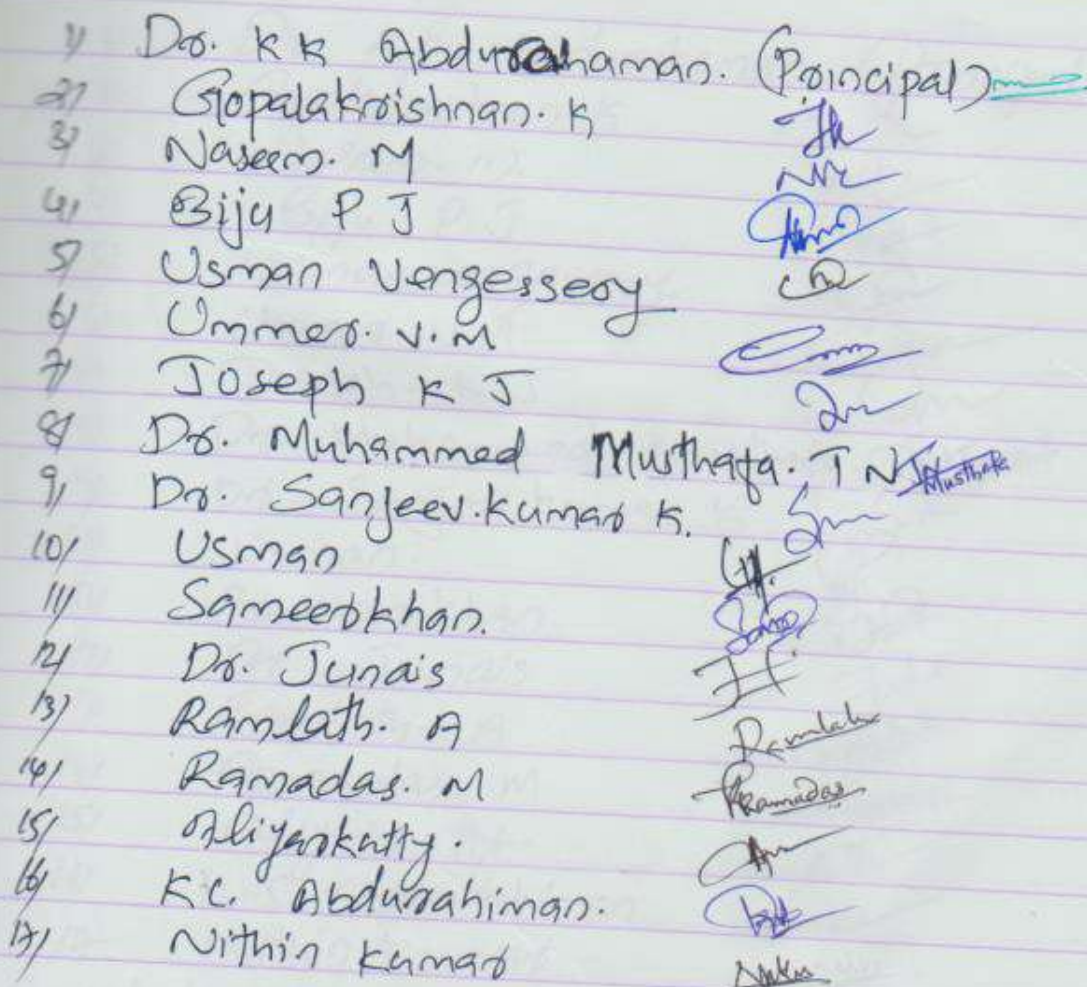 1) Dr. K K Abdurahaman. (Principal)
2) Gopalakrishnan. K
3) Naseem. M
4) Biju P J
5) Usman Vengessery
6) Ummer. V. M
7) Joseph K J
8) Dr. Muhammed Musthafa. T N Musthafa
9) Dr. Sanjeev. Kumar K.
10) Usman
11) Sameerkhan.
12) Dr. Junais
13) Ramlath. A Ramlath
14) Ramadas. M Ramadas
15) Aliyarkutty.
16) K.C. Abdurahiman.
17) Nithin Kumar